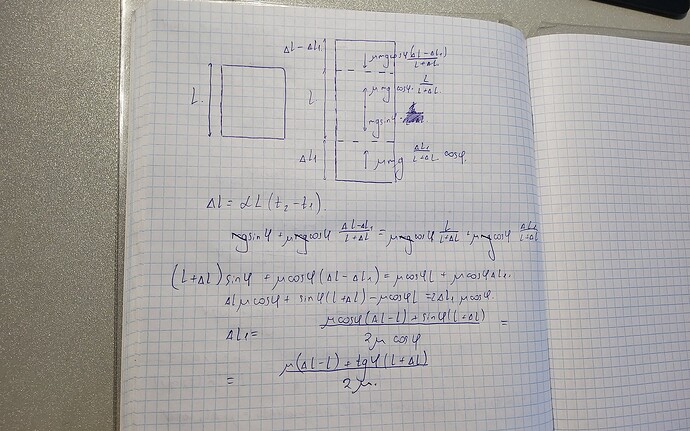 Δl - Δl₁
μmgcosφ (Δl-Δl₁)/(L+Δl)
L
L
μmg cosφ · L/(L+Δl)
mgsinφ ·
Δl₁
μmg Δl₁/(L+Δl) · cosφ
Δl = αL(t₂-t₁).
mgsinφ + μmgcosφ (Δl-Δl₁)/(L+Δl) = μmgcosφ L/(L+Δl) + μmgcosφ Δl₁/(L+Δl)
(L+Δl) sinφ + μcosφ(Δl-Δl₁) = μcosφL + μcosφΔl₁.
Δl μcosφ + sinφ(L+Δl) - μcosφL = 2Δl₁ μcosφ.
Δl₁ = (μcosφ(Δl-L) + sinφ(L+Δl))/(2μ cosφ) =
= (μ(Δl-L) + tgφ(L+Δl))/(2μ).